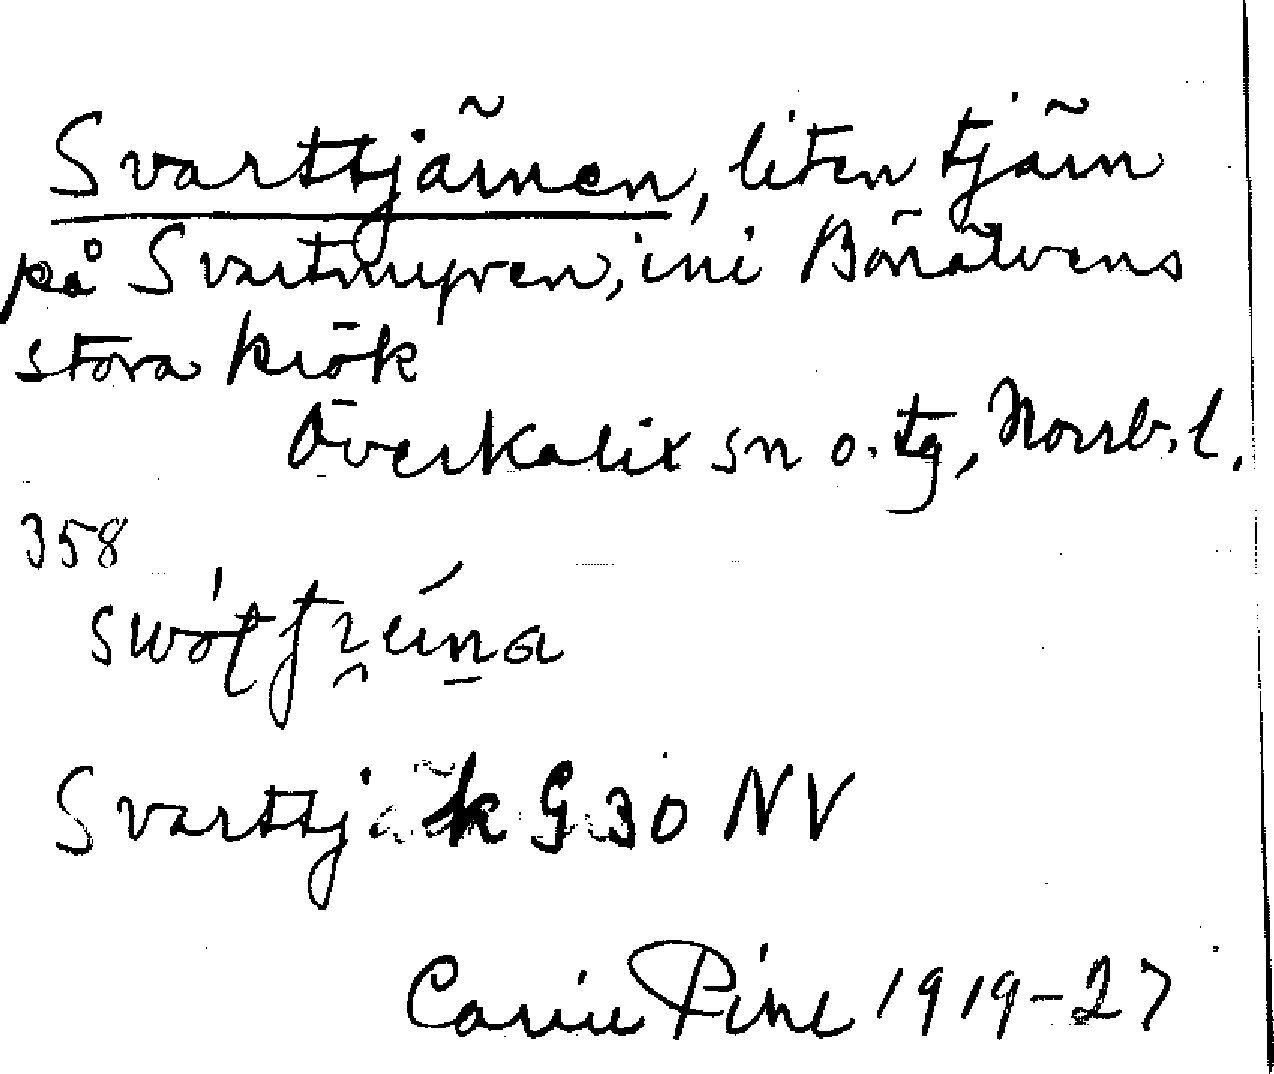 Svarttjärnen, liten tjärn
på Svartmyren, ini Börälvens
stora krök
Överkalix sn o. tg, Norrb. l.
358
Svarttj k G 30 NV
Carin Pihl 1919-27